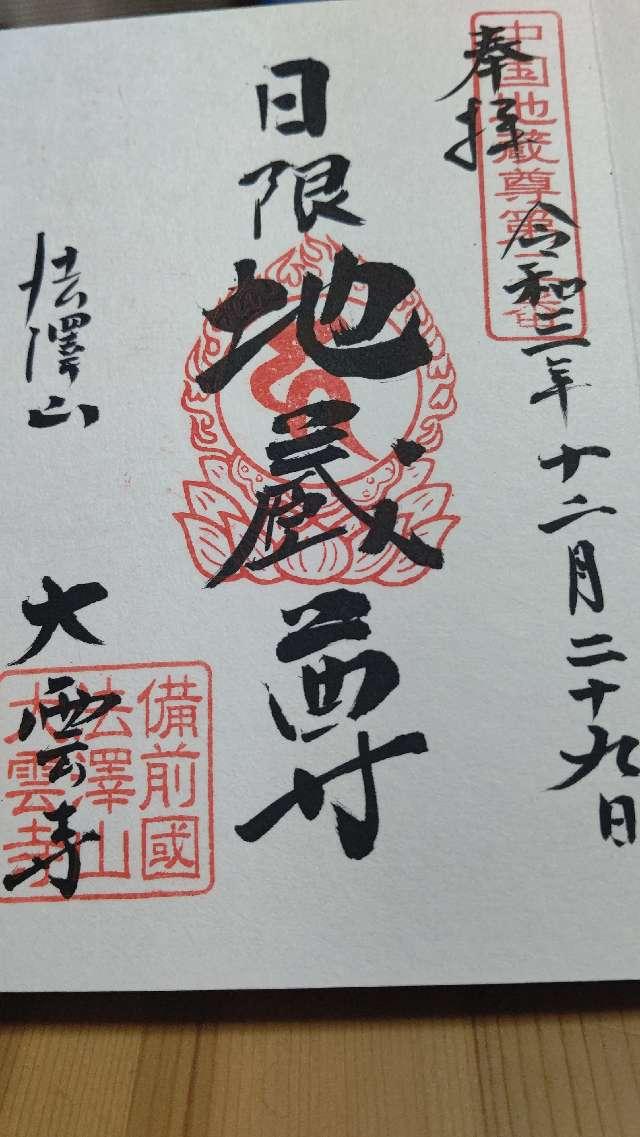 奉拝
中国地蔵尊第
令和三年十二月二十九日
日限
地蔵尊
法澤山
大雲寺
備前國
法澤山
大雲寺